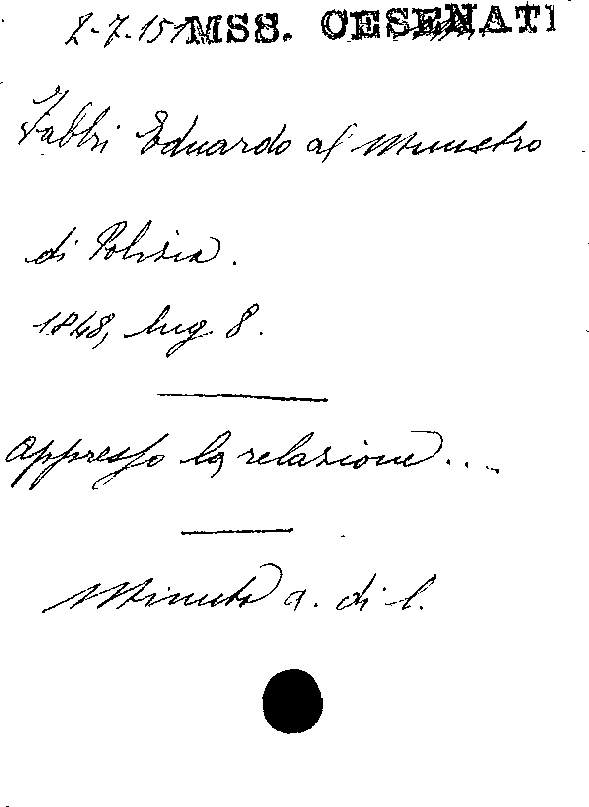 2-7-151 MSS. CESENATI
Fabbri Eduardo al Ministro
di Polizia.
1848, lug 8.
Appresso la relazione....
Minuta a. di l.